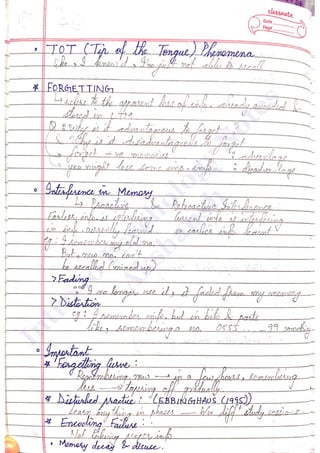 classmate
Date
Page
• TOT (Tip of the Tongue) Phenomena
like, I knew it, I'm just not able to recall
* FORGETTING
↳ refers to the apparent loss of info. already encoded &
stored in LTM
Q : Why is it advantageous to forget
Why is it disadvantageous to forget
forget -ve memories : advantage
you might lose some imp. info : disadvantage
o Interference in Memory
↳ Proactive Retroactive Interference
Earlier info. is interfering Current info is interfering
in info currently learned in earlier info learnt
eg: I remember my old no.
But, new no. can't
be recalled (mixed up)
> Fading
I no longer use it, it faded from my memory
> Distortion
eg: I remember info. but in bits & parts
like, remembering a no. 0555 .... 99 something
o Important
* Forgetting Curve :
Remembering now → in a few hours, remembering
less → tapering off gradually
* Disturbed practice : (EBBINGHAUS (1995))
learn anything in phases — b/w diff. study sessions
* Encoding Failure :
Not taking proper info
• Memory decay & disuse.